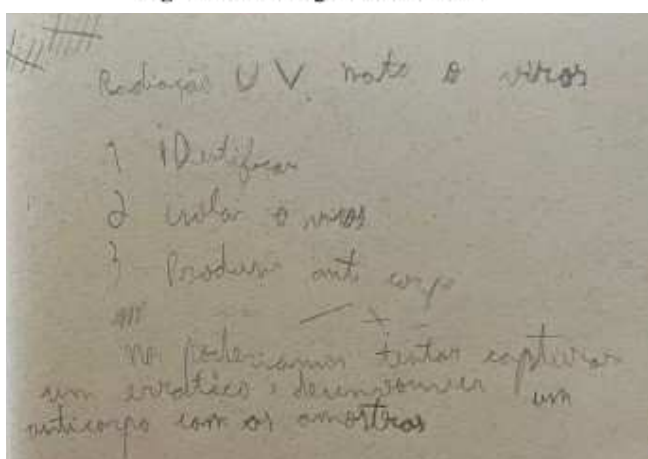 Radiação UV mata o viros
1 iDentificar
2 isolar o viros
3 Produsir anti corpo
no poderiamos tentar capturar
um erratico e desenvoumver um
anticorpo com as amostras